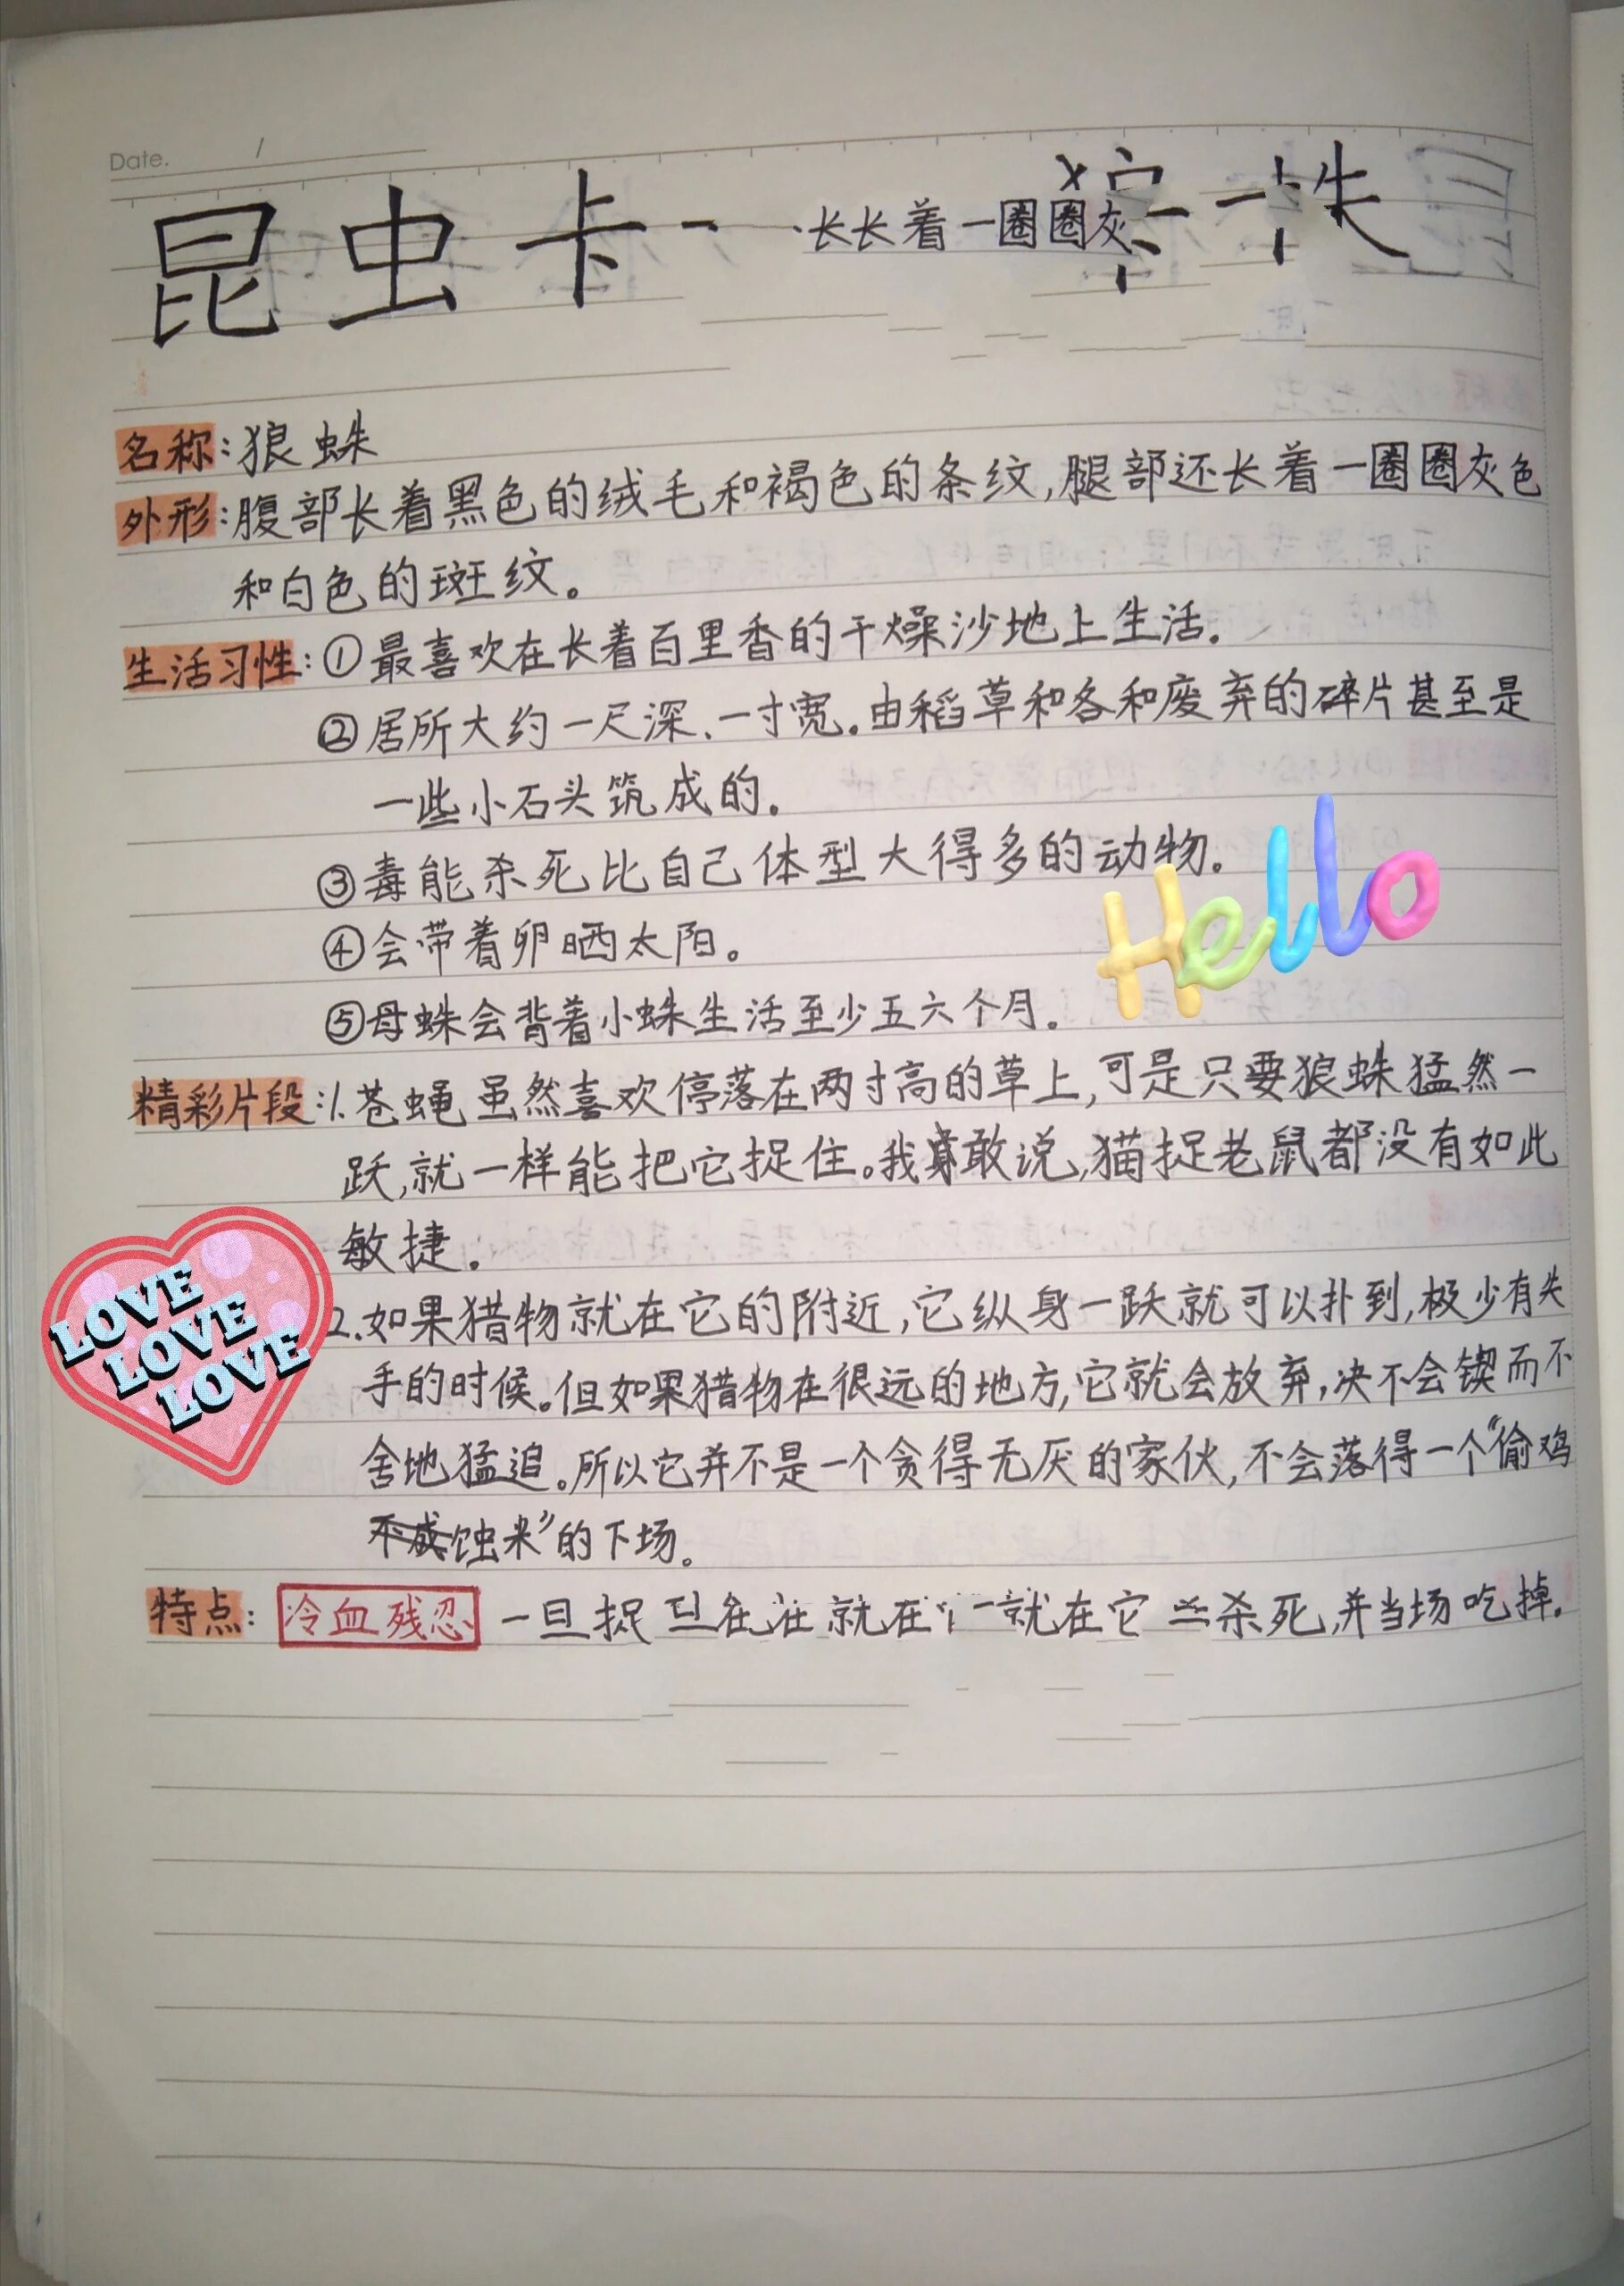 Date. /
昆虫卡 长长着一圈圈灰
名称：狼蛛
外形：腹部长着黑色的绒毛和褐色的条纹，腿部还长着一圈圈灰色
和白色的斑纹。
生活习性：①最喜欢在长着百里香的干燥沙地上生活。
②居所大约一尺深、一寸宽。由稻草和各和废弃的碎片甚至是
一些小石头筑成的。
③毒能杀死比自己体型大得多的动物。
④会带着卵晒太阳。
⑤母蛛会背着小蛛生活至少五六个月。
Hello
精彩片段：1.苍蝇虽然喜欢停落在两寸高的草上，可是只要狼蛛猛然一
跃，就一样能把它捉住。我敢说，猫捉老鼠都没有如此
敏捷。
2.如果猎物就在它的附近，它纵身一跃就可以扑到，极少有失
手的时候。但如果猎物在很远的地方，它就会放弃，决不会锲而不
舍地猛追。所以它并不是一个贪得无厌的家伙，不会落得一个“偷鸡
不成蚀米”的下场。
LOVE
LOVE
LOVE
特点：冷血残忍 一旦捉 在 就在 就在它 杀死，并当场吃掉。